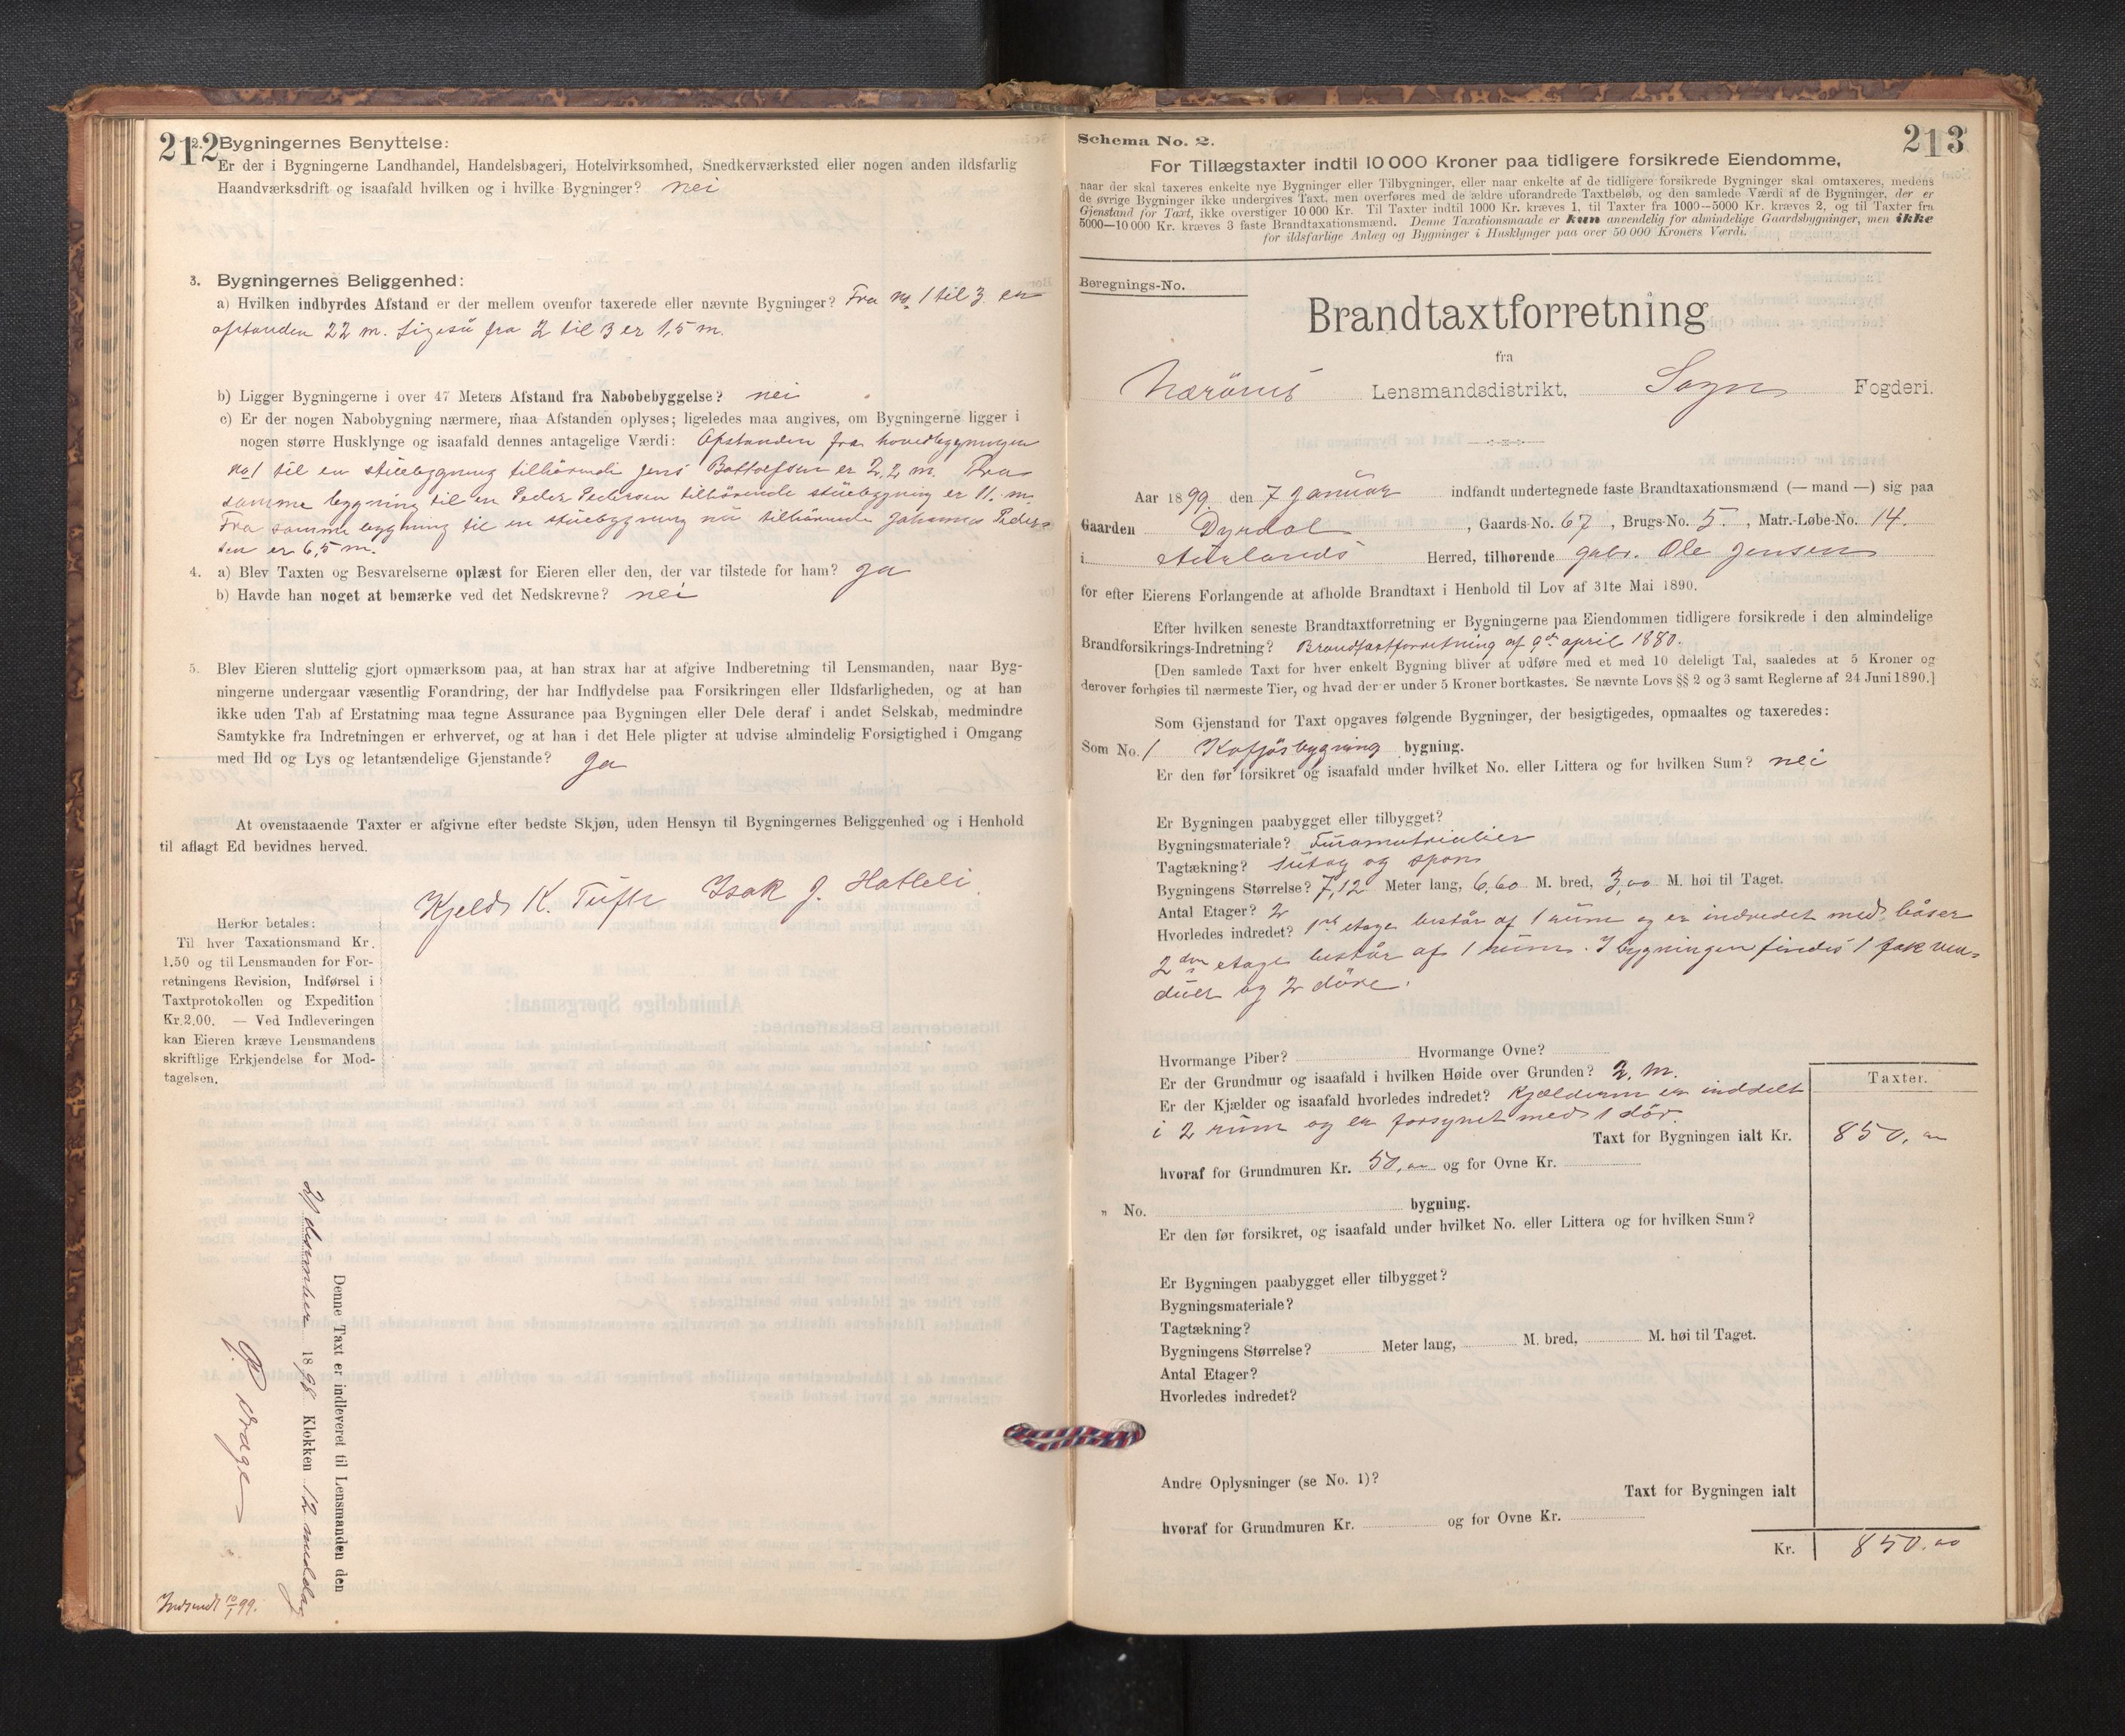 212
2. Bygningernes Benyttelse:
Er der i Bygningerne Landhandel, Handelsbageri, Hotelvirksomhed, Snedkerværksted eller nogen anden ildsfarlig
Haandværksdrift og isaafald hvilken og i hvilke Bygninger? nei
3. Bygningernes Beliggenhed:
a) Hvilken indbyrdes Afstand er der mellem ovenfor taxerede eller nævnte Bygninger? Fra No 1 til 3 er
afstanden 22 m. Ligesü fra 2 til 3 er 1,5 m.
b) Ligger Bygningerne i over 47 Meters Afstand fra Nabobebyggelse? nei
c) Er der nogen Nabobygning nærmere, maa Afstanden oplyses; ligeledes maa angives, om Bygningerne ligger i
nogen større Husklynge og isaafald dennes antagelige Værdi: Afstanden fra hovedbygningen
No 1 til en stuebygning tilhörende Jens Bottolfsen er 2,2 m. Fra
samme bygning til en Peder Pedersen tilhörende stüebygning er 11. m.
Fra samme bygning til en stüebygning nü tilhörende Johannes Peder-
sen er 6,5 m.
4. a) Blev Taxten og Besvarelserne oplæst for Eieren eller den, der var tilstede for ham? Ja
b) Havde han noget at bemærke ved det Nedskrevne? nei
5. Blev Eieren sluttelig gjort opmærksom paa, at han strax har at afgive Indberetning til Lensmanden, naar Byg-
ningerne undergaar væsentlig Forandring, der har Indflydelse paa Forsikringen eller Ildsfarligheden, og at han
ikke uden Tab af Erstatning maa tegne Assurance paa Bygningen eller Dele deraf i andet Selskab, medmindre
Samtykke fra Indretningen er erhvervet, og at han i det Hele pligter at udvise almindelig Forsigtighed i Omgang
med Ild og Lys og letantændelige Gjenstande? Ja
At ovenstaaende Taxter er afgivne efter bedste Skjøn, uden Hensyn til Bygningernes Beliggenhed og i Henhold
til aflagt Ed bevidnes herved.
Kjeld K. Tufte Isak J. Hatleli.
Herfor betales:
Til hver Taxationsmand Kr.
1.50 og til Lensmanden for For-
retningens Revision, Indførsel i
Taxtprotokollen og Expedition
Kr. 2.00. — Ved Indleveringen
kan Eieren kræve Lensmandens
skriftlige Erkjendelse for Mod-
tagelsen.
Denne Taxt er indleveret til Lensmanden den
21 desember 1898 Klokken 12 middag
Indsendt 10/1 99.
213
Schema No. 2.
For Tillægstaxter indtil 10 000 Kroner paa tidligere forsikrede Eiendomme,
naar der skal taxeres enkelte nye Bygninger eller Tilbygninger, eller naar enkelte af de tidligere forsikrede Bygninger skal omtaxeres, medens
de øvrige Bygninger ikke undergives Taxt, men overføres med de ældre uforandrede Taxtbeløb, og den samlede Værdi af de Bygninger, der er
Gjenstand for Taxt, ikke overstiger 10 000 Kr. Til Taxter indtil 1000 Kr. kræves 1, til Taxter fra 1000—5000 Kr. kræves 2, og til Taxter fra
5000—10 000 Kr. kræves 3 faste Brandtaxationsmænd. Denne Taxationsmaade er kun anvendelig for almindelige Gaardsbygninger, men ikke
for ildsfarlige Anlæg og Bygninger i Husklynger paa over 50 000 Kroners Værdi.
Beregnings-No.
Brandtaxtforretning
fra
Nærönes Lensmandsdistrikt, Sogn Fogderi.
Aar 1899 den 7 Januar indfandt undertegnede faste Brandtaxationsmænd (— mand —) sig paa
Gaarden Dyrdal, Gaards-No. 67, Brugs-No. 5., Matr.-Løbe-No. 14.
i Aurlands Herred, tilhørende gbr. Ole Jensen
for efter Eierens Forlangende at afholde Brandtaxt i Henhold til Lov af 31te Mai 1890.
Efter hvilken seneste Brandtaxtforretning er Bygningerne paa Eiendommen tidligere forsikrede i den almindelige
Brandforsikrings-Indretning? Brandtaxtforretning af 9de april 1880.
[Den samlede Taxt for hver enkelt Bygning bliver at udføre med et med 10 deleligt Tal, saaledes at 5 Kroner og
derover forhøies til nærmeste Tier, og hvad der er under 5 Kroner bortkastes. Se nævnte Lovs §§ 2 og 3 samt Reglerne af 24 Juni 1890.]
Som Gjenstand for Taxt opgaves følgende Bygninger, der besigtigedes, opmaaltes og taxeredes:
Som No. 1 Kofjösbygning bygning.
Er den før forsikret og isaafald under hvilket No. eller Littera og for hvilken Sum? nei
Er Bygningen paabygget eller tilbygget?
Bygningsmateriale? Furumaterialier
Tagtækning? Sutag og spon
Bygningens Størrelse? 7,12 Meter lang, 6,60 M. bred, 3,00 M. høi til Taget.
Antal Etager? 2
Hvorledes indredet? 1ste etage består af 1 rum og er indredet med båser
2den etage består af 1 rum. I bygningen findes 1 fak vin-
duer og 2 döre.
Hvormange Piber? Hvormange Ovne?
Er der Grundmur og isaafald i hvilken Høide over Grunden? 2. m.
Er der Kjælder og isaafald hvorledes indredet? Kjælderen er inddelt
i 2 rum og er forsynet med 1 dör
Taxter.
Taxt for Bygningen ialt Kr. 850,00
hvoraf for Grundmuren Kr. 50,00 og for Ovne Kr.
" No. bygning.
Er den før forsikret, og isaafald under hvilket No. eller Littera og for hvilken Sum?
Er Bygningen paabygget eller tilbygget?
Bygningsmateriale?
Tagtækning?
Bygningens Størrelse? Meter lang, M. bred, M. høi til Taget.
Antal Etager?
Hvorledes indredet?
Andre Oplysninger (se No. 1)?
Taxt for Bygningen ialt
hvoraf for Grundmuren Kr. og for Ovne Kr.
Kr. 850.00